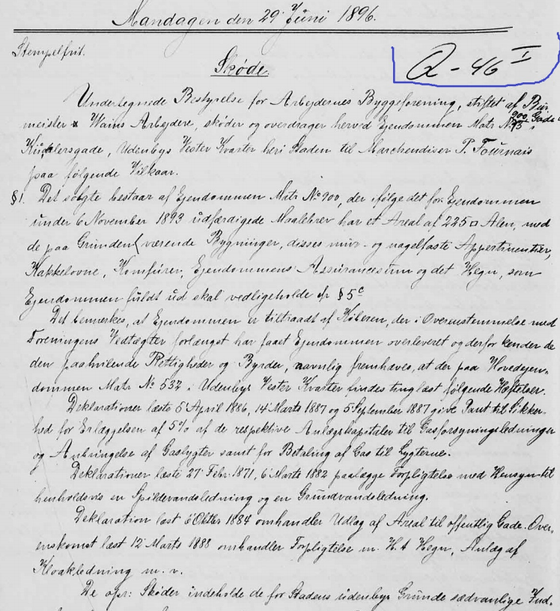 Mandagen den 29' Juni 1896.
Stempelfrit.
Q-46 I
Skøde.
Undertegnede Bestyrelse for Arbejdernes Byggeforening, stiftet af Bur
meister & Wains Arbejdere, skøder og overdrager herved Ejendommen Matr. No 900. Gade No
Küchlersgade, Udenbys Vester Kvarter heri Staden til Marchendiser P. Tournais
paa følgende Vilkaar.
§1. Det solgte bestaar af Ejendommen Matr No 900, der ifølge det for Ejendommen
under 6 November 1893 udfærdigede Maalebrev har et Areal af 225 □ Alen, med
de paa Grunden værende Bygninger, disses mur- og nagelfaste Appertinentier,
Kakkelovne, Komfurer, Ejendommens Assurancesum og det Hegn, som
Ejendommen fuldt ud skal vedligeholde cfr §5c
Det bemærkes, at Ejendommen er tiltraadt af Køberen, der i Overensstemmelse med
Foreningens Vedtægter forlængst har faaet Ejendommen overleveret og derfor kender de
den paahvilende Rettigheder og Byrder, navnlig fremhæves, at der paa Hovedejen-
dommen Matr No 537 i Udenbys Vester Kvarter findes tinglæst følgende Hæftelser.
Deklarationer læste 5 April 1886, 14 Marts 1887 og 5 September 1887 give Pant til Sikker-
hed for Erlæggelsen af 5% af de respektive Anlægskapitaler til Gasforsyningsledninger
og Anbringelse af Gaslygter samt for Betaling af Gas til Lygterne.
Deklarationer læste 27' Febr. 1871, 6 Marts 1882 paalægge Forpligtelse med Hensyn til
henholdsvis en Spildevandsledning og en Grundvandsledning.
Deklaration læst 6 Oktbr 1884 omhandler Udlæg af Areal til offentlig Gade. Over-
enskomst læst 12' Marts 1888 omhandler Forpligtelse m. H. t. Hegn, Anlæg af
Kloakledning m. v.
De opr: Skøder indeholde de for Stadens udenbys Grunde sædvanlige Ind,